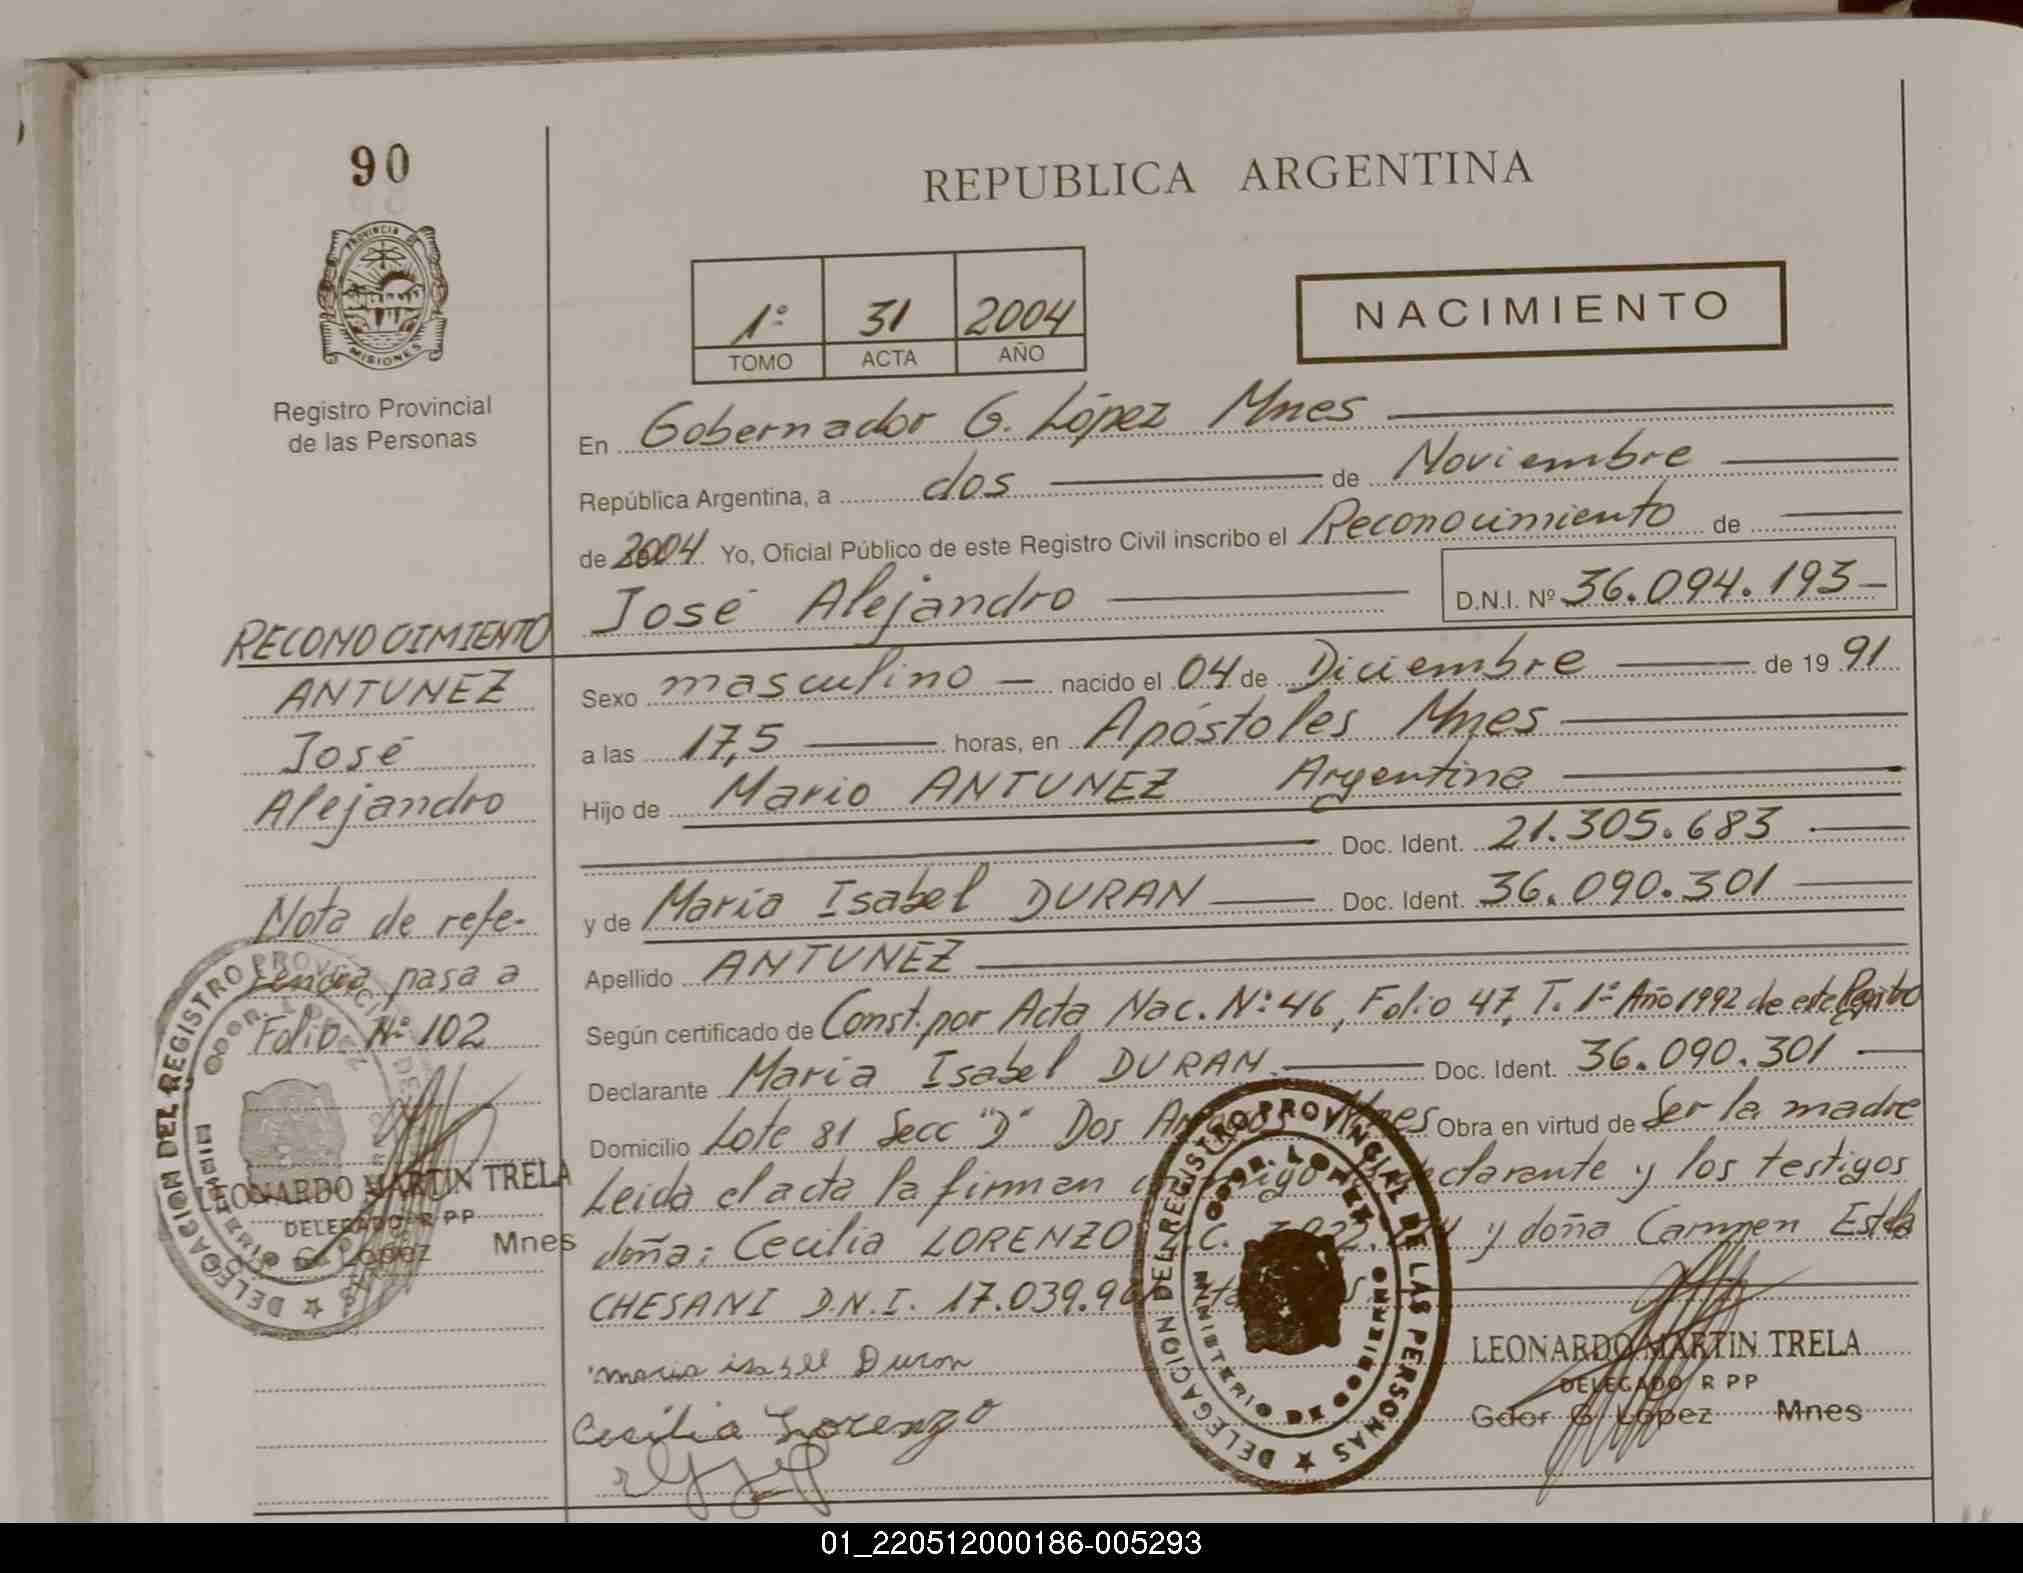 90
REPUBLICA ARGENTINA
PROVINCIA DE
MISIONES
Registro Provincial
de las Personas
1º 31 2004
TOMO ACTA AÑO
NACIMIENTO
En Gobernador G. López Mnes
República Argentina, a dos de Noviembre
de 2004 Yo, Oficial Público de este Registro Civil inscribo el Reconocimiento de
José Alejandro D.N.I. Nº 36.094.193
RECONOCIMIENTO
ANTUNEZ
José
Alejandro
Nota de refe-
rencia pasa a
Folio Nº 102
LEONARDO MARTIN TRELA
DELEGADO R P P
G. Lopez Mnes
DELEGACION DEL REGISTRO PROVINCIAL
Sexo masculino nacido el 04 de Diciembre de 19 91
a las 17,5 horas, en Apóstoles Mnes
Hijo de Mario ANTUNEZ Argentina
Doc. Ident. 21.305.683
y de María Isabel DURAN Doc. Ident. 36.090.301
Apellido ANTUNEZ
Según certificado de Const. por Acta Nac. Nº 46, Folio 47, T. 1º Año 1992 de este Registro
Declarante María Isabel DURAN Doc. Ident. 36.090.301
Domicilio Lote 81 Secc "D" Dos Mnes Obra en virtud de Ser la madre
Leída el acta la firman declarante y los testigos
doña: Cecilia LORENZO y doña Carmen Estela
CHESANI D.N.I. 17.039.9
maria isabel Duran
Cecilia Lorenzo
DELEGACION DEL REGISTRO PROVINCIAL DE LAS PERSONAS
GDOR. LOPEZ
MINISTERIO DE GOBIERNO
LEONARDO MARTIN TRELA
DELEGADO R P P
Gdor G. Lopez Mnes
01_220512000186-005293